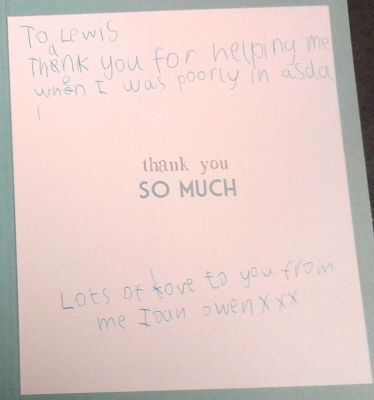 To Lewis
Thank you for helping me
when I was poorly in asda
thank you
SO MUCH
Lots of love to you from
me Ioan owen xxx